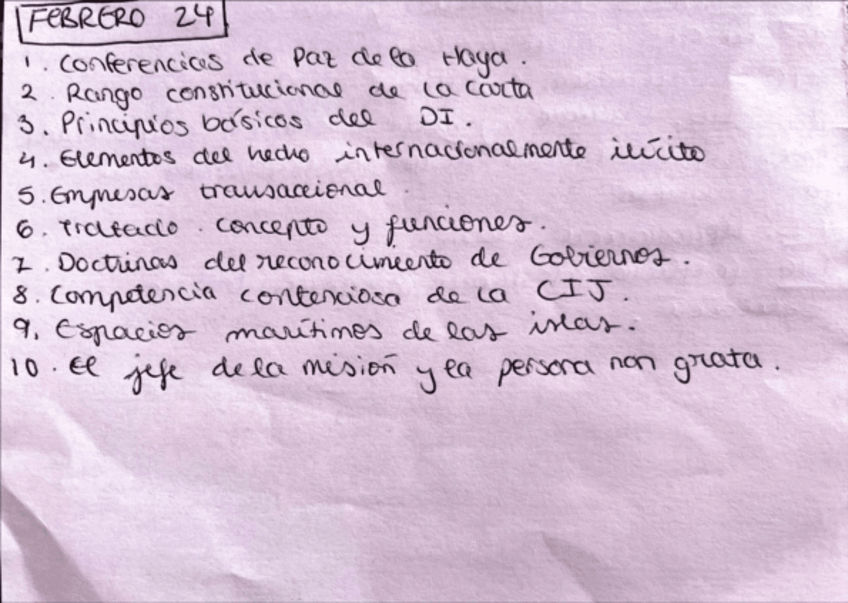 FEBRERO 24
1. Conferencias de Paz de la Haya.
2. Rango constitucional de la Carta
3. Principios básicos del DI.
4. Elementos del hecho internacionalmente ilícito
5. Empresas transaccional.
6. Tratado. concepto y funciones.
7. Doctrinas del reconocimiento de Gobiernos.
8. Competencia contenciosa de la CIJ.
9. Espacios marítimos de las islas.
10. El jefe de la misión y la persona non grata.